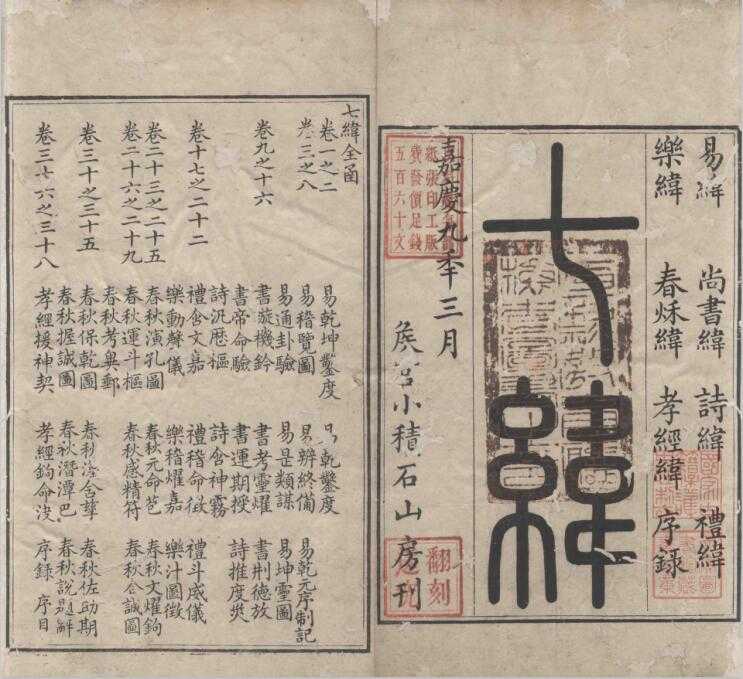 易緯 尚書緯 詩緯 禮緯
樂緯 春秌緯 孝經緯 序録
七緯
嘉慶九秊三月 矦官小積石山房刊
翻刻
紙張印工
費發價足錢
五百六十文
七緯全函
卷一之二 易乾坤鑿度 易乾鑿度
卷三之八 易稽覽圖 易辨終備 易乾元序制記
易通卦驗 易是類謀 易坤靈圖
卷九之十六 書璇機鈐 書考靈燿 書刑德放
書帝命驗 書運期授
詩汎厯樞 詩含神霧 詩推度災
卷十七之二十二 禮含文嘉 禮稽命徵 禮斗威儀
樂動聲儀 樂稽燿嘉 樂汁圖徵
卷二十三之二十五 春秋演孔圖 春秋元命苞 春秋文燿鉤
卷二十六之二十九 春秋運斗樞 春秋感精符 春秋合誠圖
春秋考異郵
卷三十之三十五 春秋保乾圖 春秋漢含孳 春秋佐助期
春秋握誠圖 春秋潛潭巴 春秋說題辭
卷三十六之三十八 孝經援神契 孝經鉤命決 序録 序目